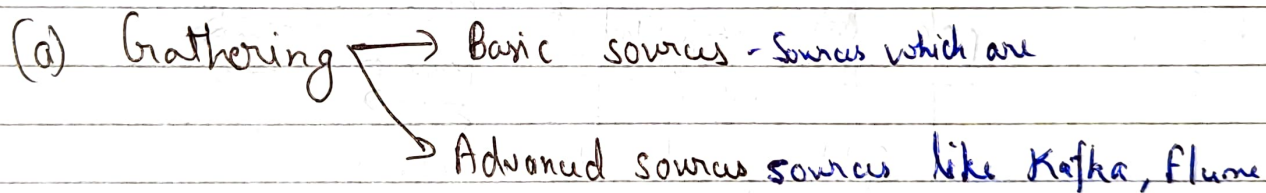 (a) Gathering → Basic sources - Sources which are
→ Advanced sources sources like Kafka, Flume